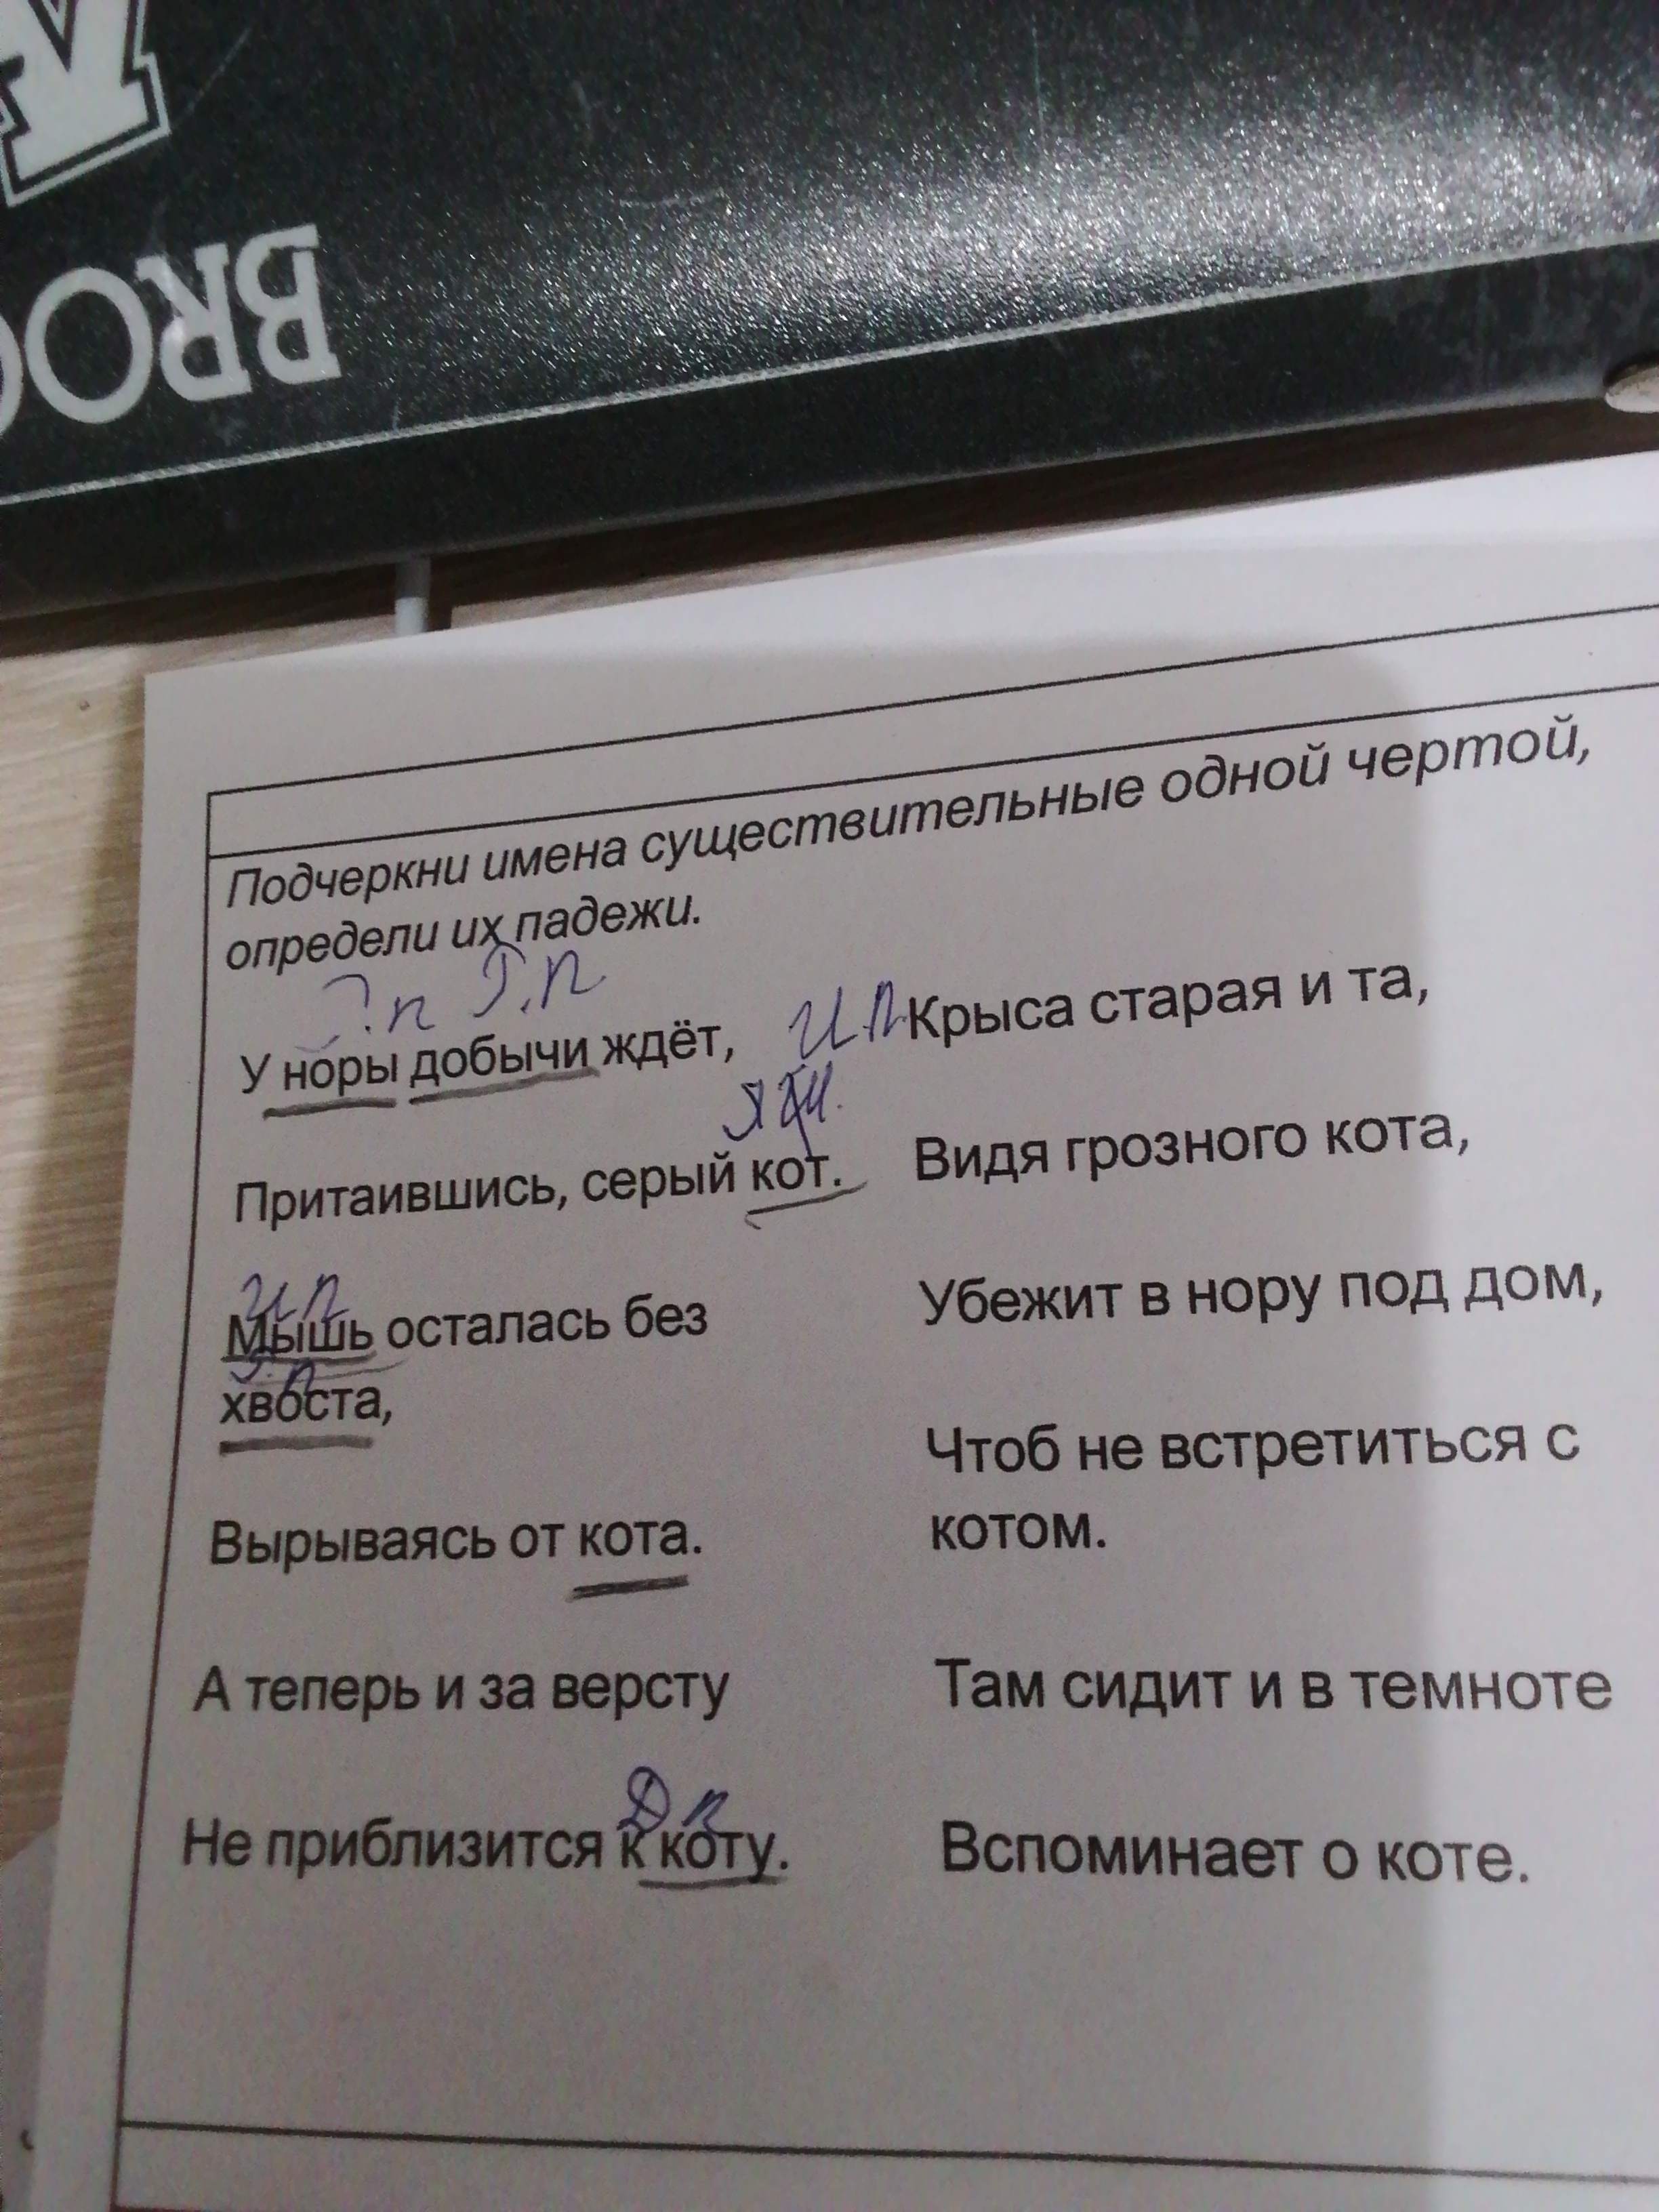 BRO
Подчеркни имена существительные одной чертой,
определи их падежи.
Г.п Г.п
У норы добычи ждёт,
И.п
Притаившись, серый кот.
И п
Мышь осталась без
Г.п
хвоста,
Вырываясь от кота.
А теперь и за версту
Д п
Не приблизится к коту.
Крыса старая и та,
Видя грозного кота,
Убежит в нору под дом,
Чтоб не встретиться с
котом.
Там сидит и в темноте
Вспоминает о коте.